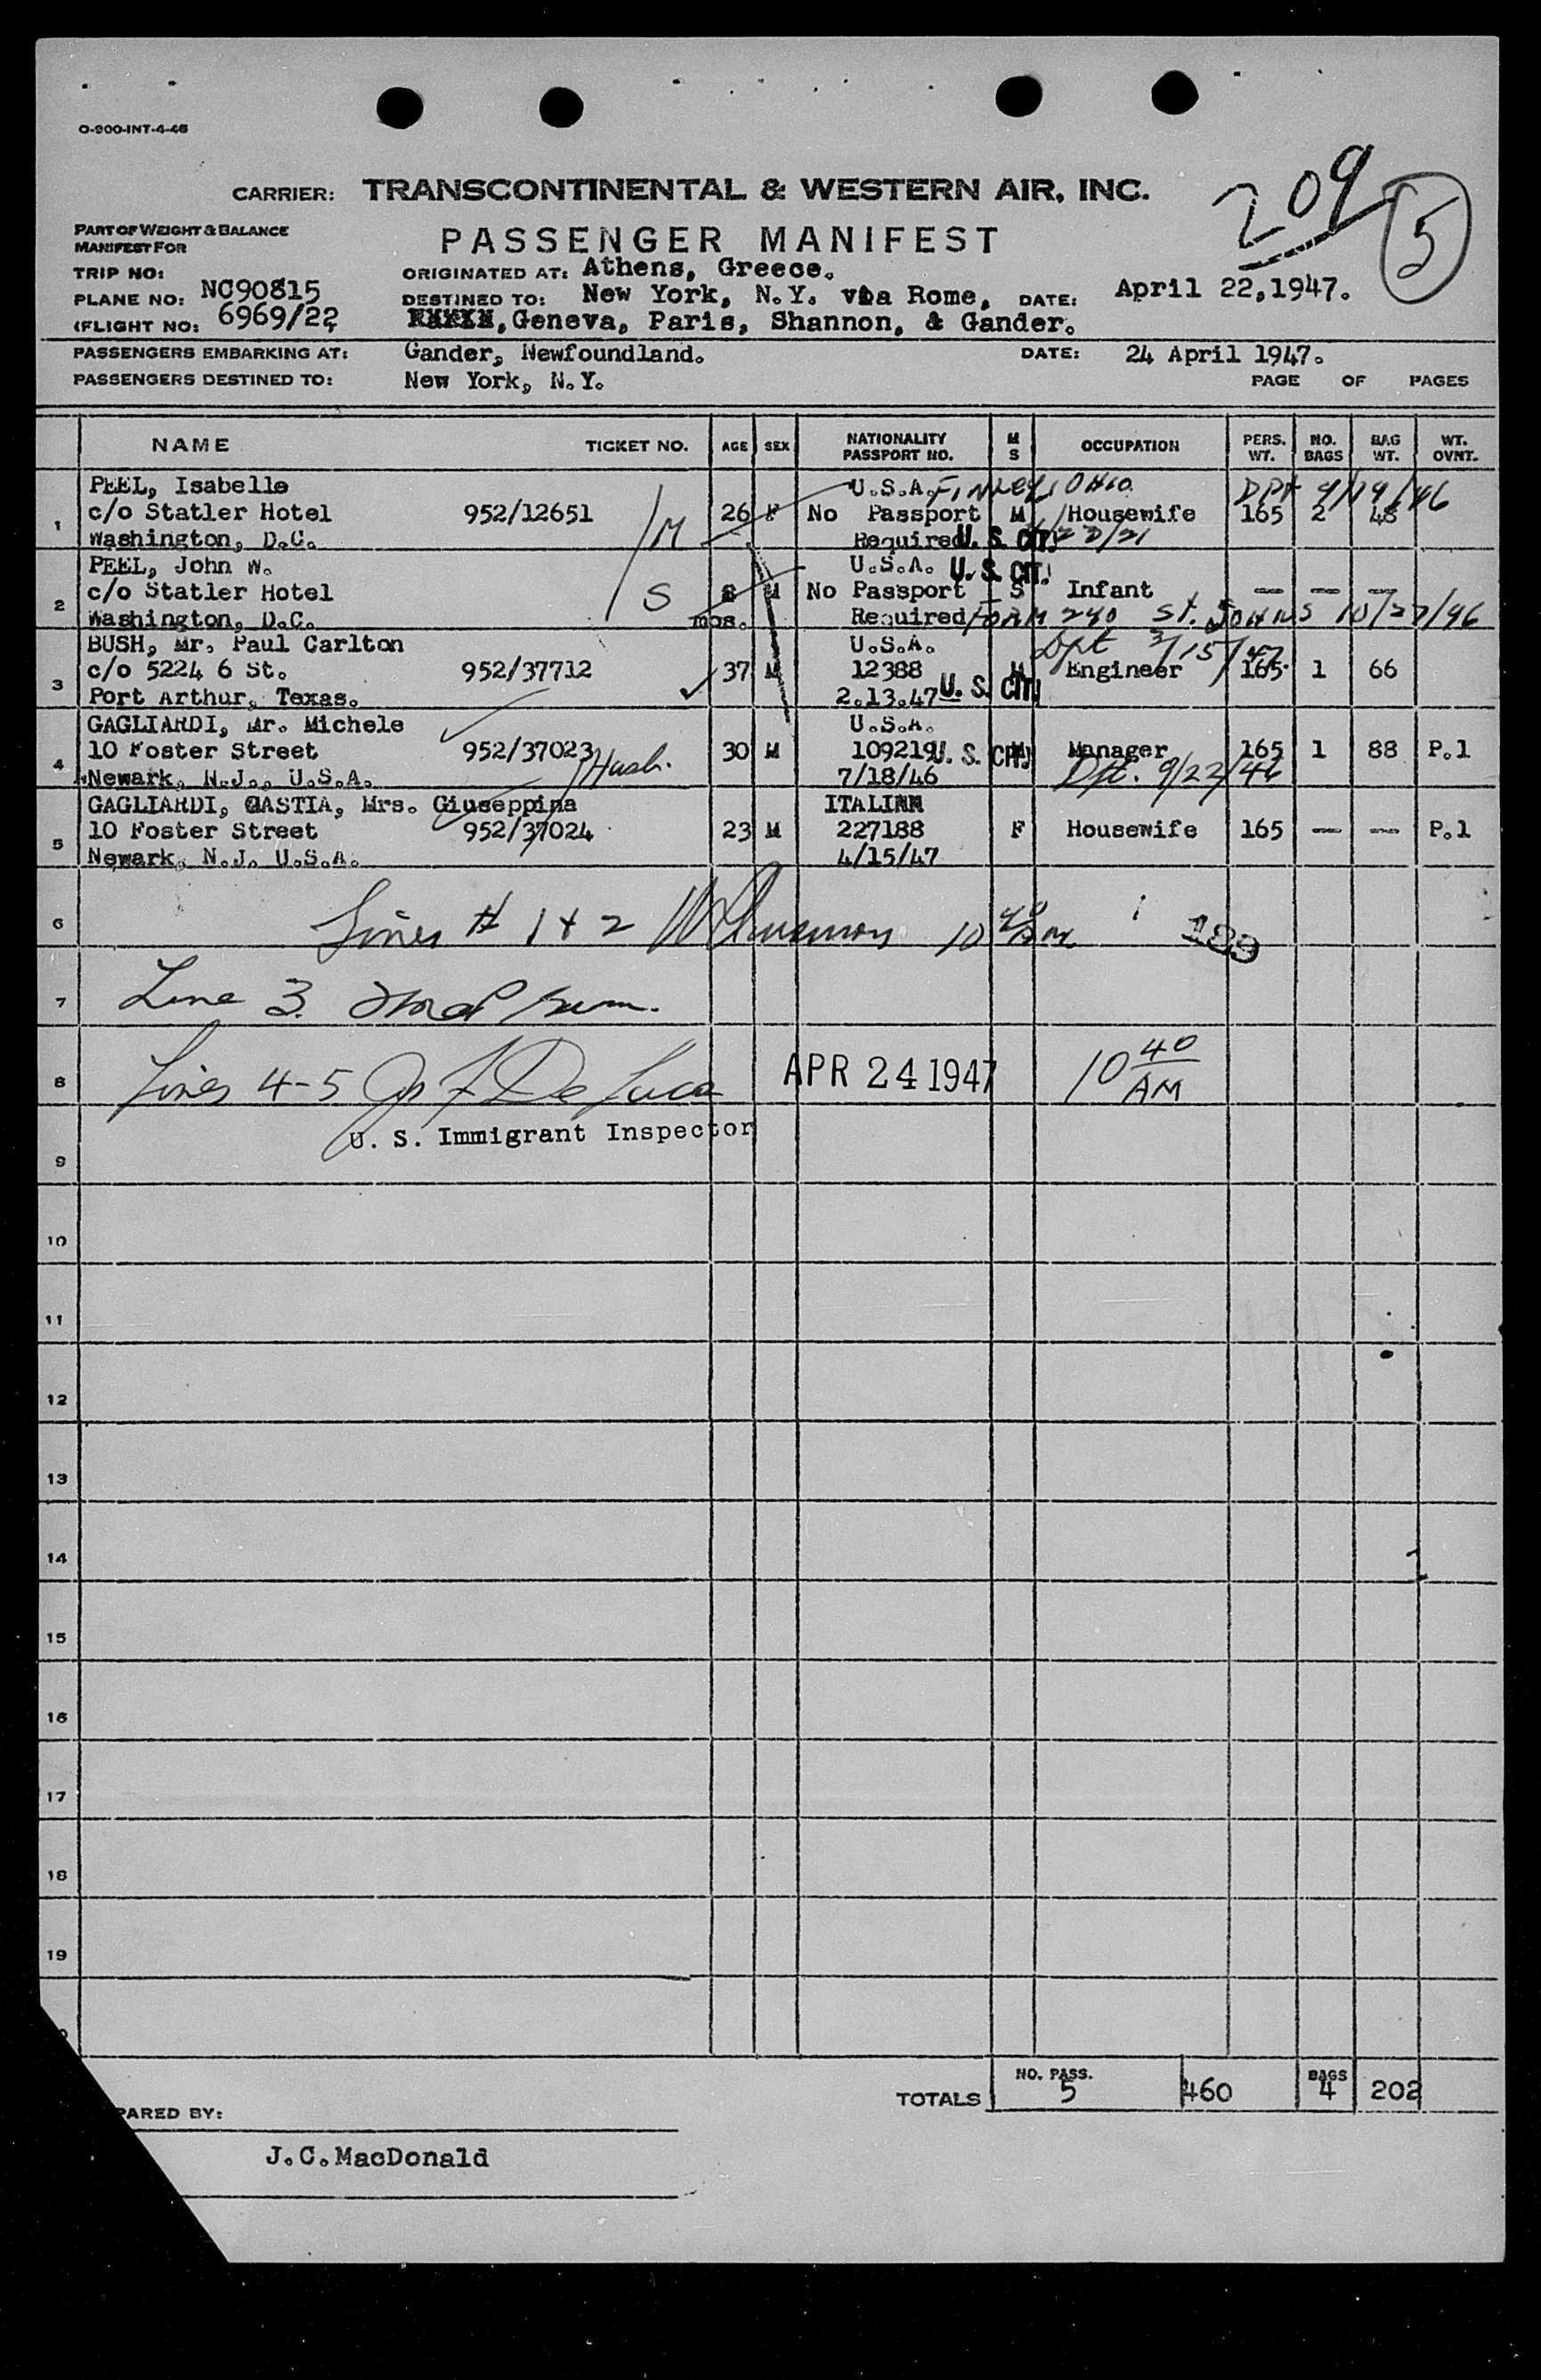 O-900-INT-4-46
209
5
CARRIER: TRANSCONTINENTAL & WESTERN AIR, INC.
PART OF WEIGHT & BALANCE
MANIFEST FOR
PASSENGER MANIFEST
TRIP NO:
ORIGINATED AT: Athens, Greece.
PLANE NO: NC90815
DESTINED TO: New York, N.Y. via Rome, DATE: April 22,1947.
(FLIGHT NO: 6969/22
, Geneva, Paris, Shannon, & Gander.
PASSENGERS EMBARKING AT: Gander, Newfoundland. DATE: 24 April 1947.
PASSENGERS DESTINED TO: New York, N.Y. PAGE OF PAGES
NAME TICKET NO. AGE SEX NATIONALITY PASSPORT NO. M S OCCUPATION PERS. WT. NO. BAGS BAG WT. WT. OVNT.
PEEL, Isabelle U.S.A. Finley, Ohio DPt 9/19/46
1 c/o Statler Hotel 952/12651 M 26 F No Passport M Housewife 165 2 48
Washington, D.C. Required U. S. CIT.
PEEL, John W. U.S.A. U. S. CIT.
2 c/o Statler Hotel S 8 M No Passport S Infant — — —
Washington, D.C. mos. Required Form 240 St. Johns 10/22/46
BUSH, Mr. Paul Carlton U.S.A. Dpt 3/15/47.
3 c/o 5224 6 St. 952/37712 37 M 12388 M Engineer 165 1 66
Port Arthur, Texas. 2.13.47 U. S. CIT.
GAGLIARDI, Mr. Michele U.S.A.
4 10 Foster Street 952/37023 Husb. 30 M 109219 U. S. CIT. Manager 165 1 88 P.1
Newark, N.J., U.S.A. 7/18/46 Dpt. 9/22/46
GAGLIARDI, GASTIA, Mrs. Giuseppina ITALIAN
5 10 Foster Street 952/37024 23 M 227188 F Housewife 165 — — P.1
Newark, N.J. U.S.A. 4/15/47
6 Lines # 1 + 2 10 40 AM 189
7 Line 3.
8 Lines 4-5 De Luca APR 24 1947 10 40 AM
U. S. Immigrant Inspector
9
10
11
12
13
14
15
16
17
18
19
TOTALS NO. PASS. 5 460 BAGS 4 202
PARED BY:
J.C.MacDonald